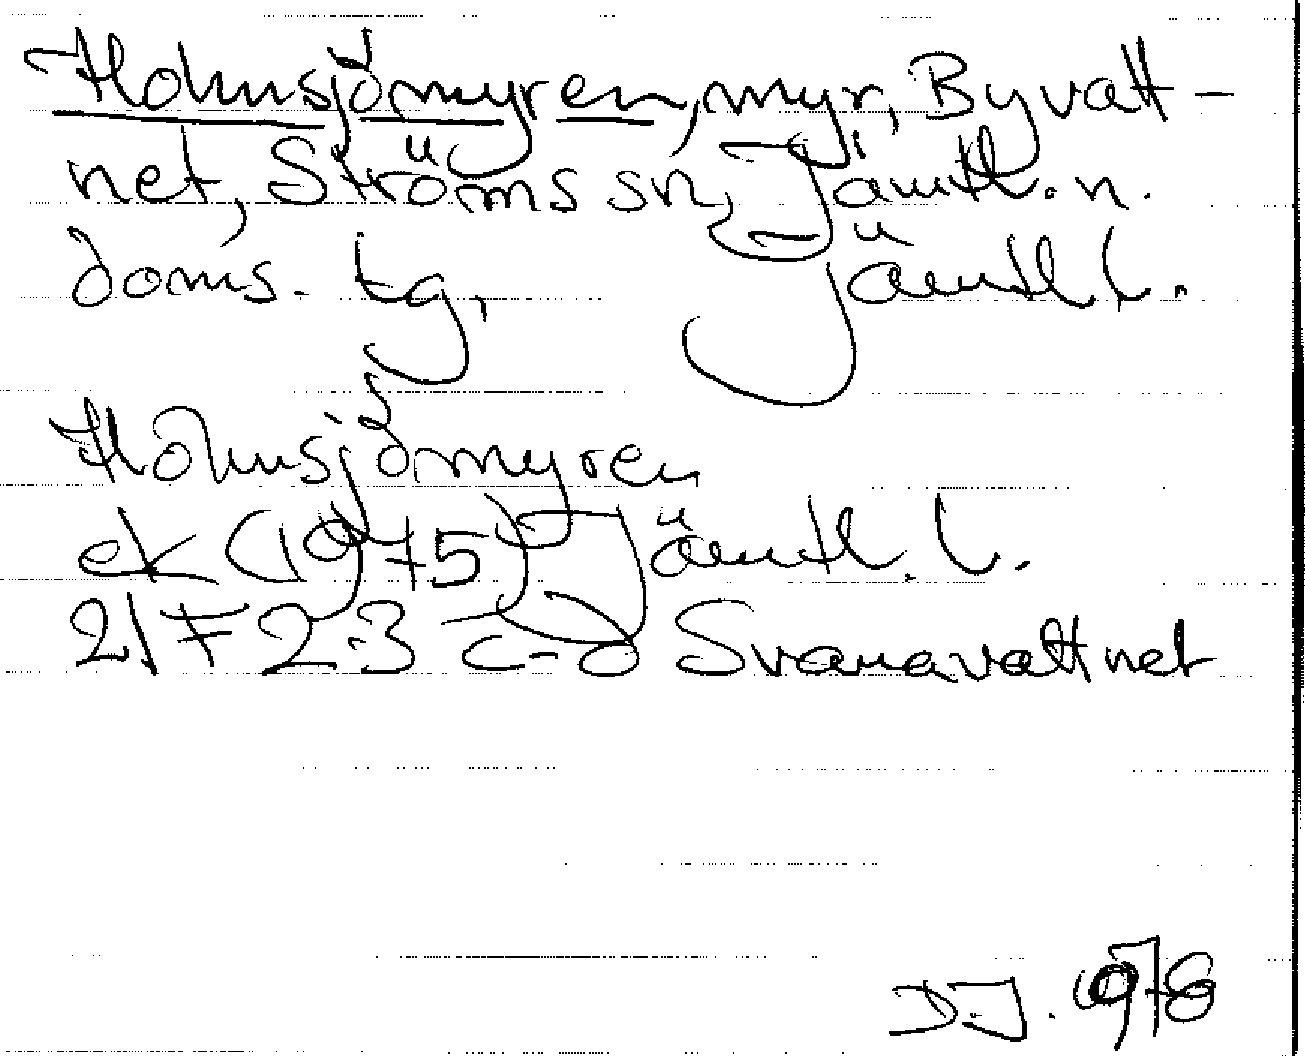 Holmsjömyren, myr, Byvatt-
net, Ströms sn, Jämtl. n.
doms. tg, Jämtl l.
Holmsjömyren
ek (1975) Jämtl. l.
21 F 2-3 c-d Svanavattnet
D.J. 1978